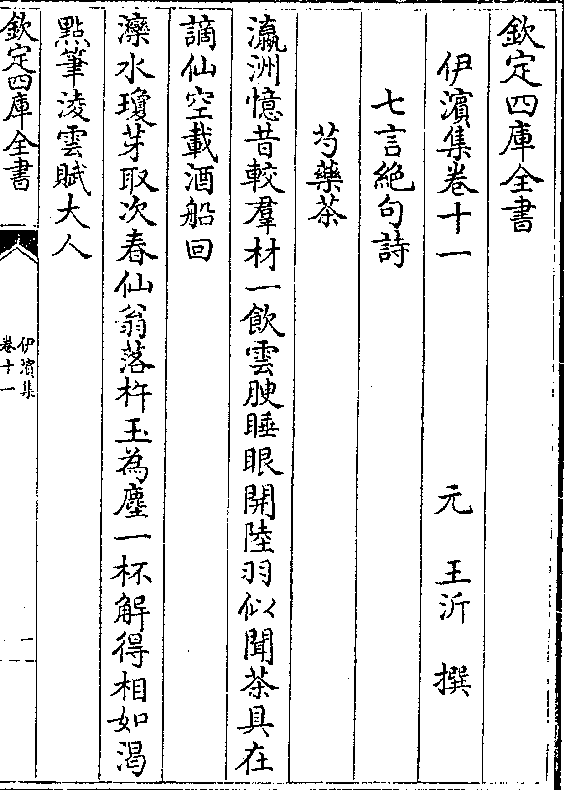 欽定四庫全書
伊濱集卷十一　元　王沂　撰
七言絶句詩
芍藥茶
瀛洲憶昔較羣材一飲雲腴睡眼開陸羽似聞茶具在
謫仙空載酒船回
灤水瓊芽取次春仙翁落杵玉為塵一杯解得相如渴
點筆淩雲賦大人
欽定四庫全書
伊濱集
卷十一
一